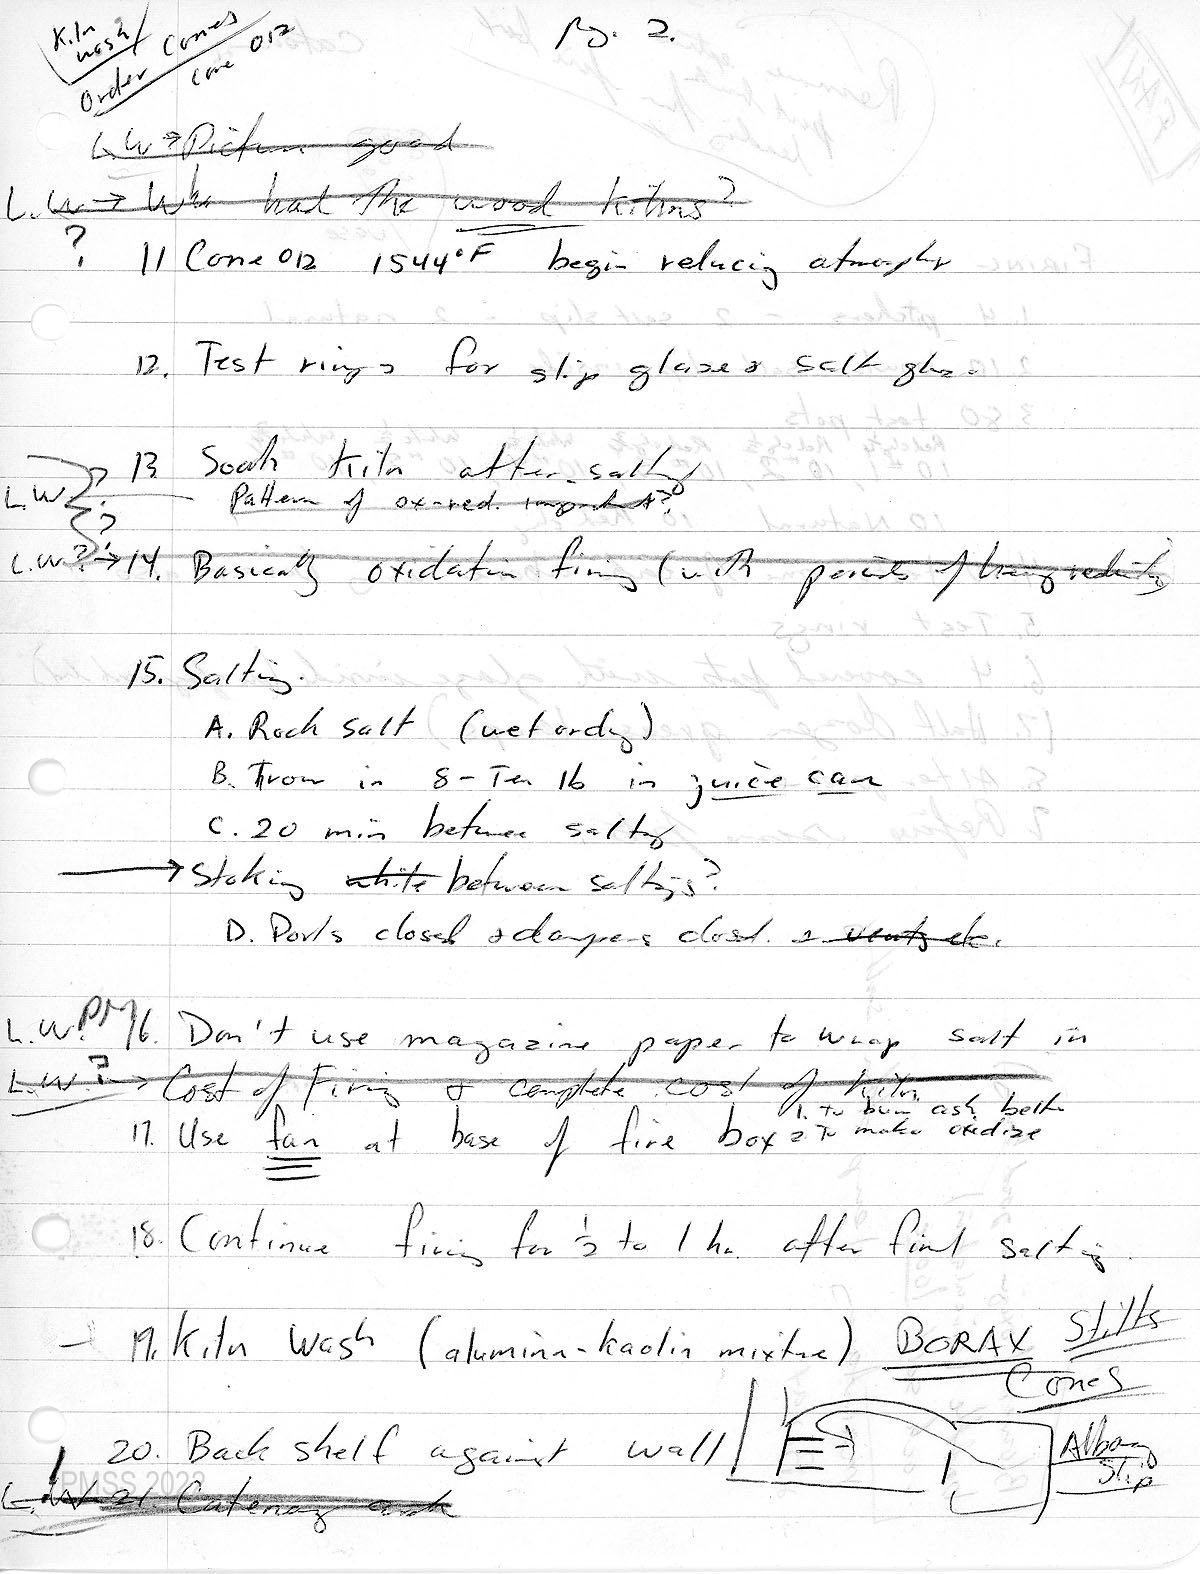 Kiln
wash
Order Cones
Cone 012
Pg. 2.
L.W → Picture good
L.W → Who had the wood kilns?
? 11 Cone 012 1544°F begin reducing atmosphr
12. Test rings for slip glaze & salt glaz.
13 Soak kiln after salting
L.W ? Pattern of ox-red. important?
?
L.W? → 14. Basically oxidation firing (with periods of being reducing)
15. Salting.
A. Rock salt (wet or dry)
B. Trow in 8-Ten lb in juice can
C. 20 min between salting
→ Stoking white between saltings?
D. Ports closed & dampers closed. & vents etc.
L.W. PM 16. Don't use magazine paper to wrap salt in
L.W? → Cost of Firing & complete cost of kiln
17. Use fan at base of fire box 1. to burn ash better
2 To make oxidize
18. Continue firing for ½ to 1 hr. after final salting.
19. Kiln Wash (alumina-kaolin mixture) BORAX Stilts
Cones
20. Back shelf against wall
Albany
Slip
PMSS 2022
L.W. 21. Catenary arch